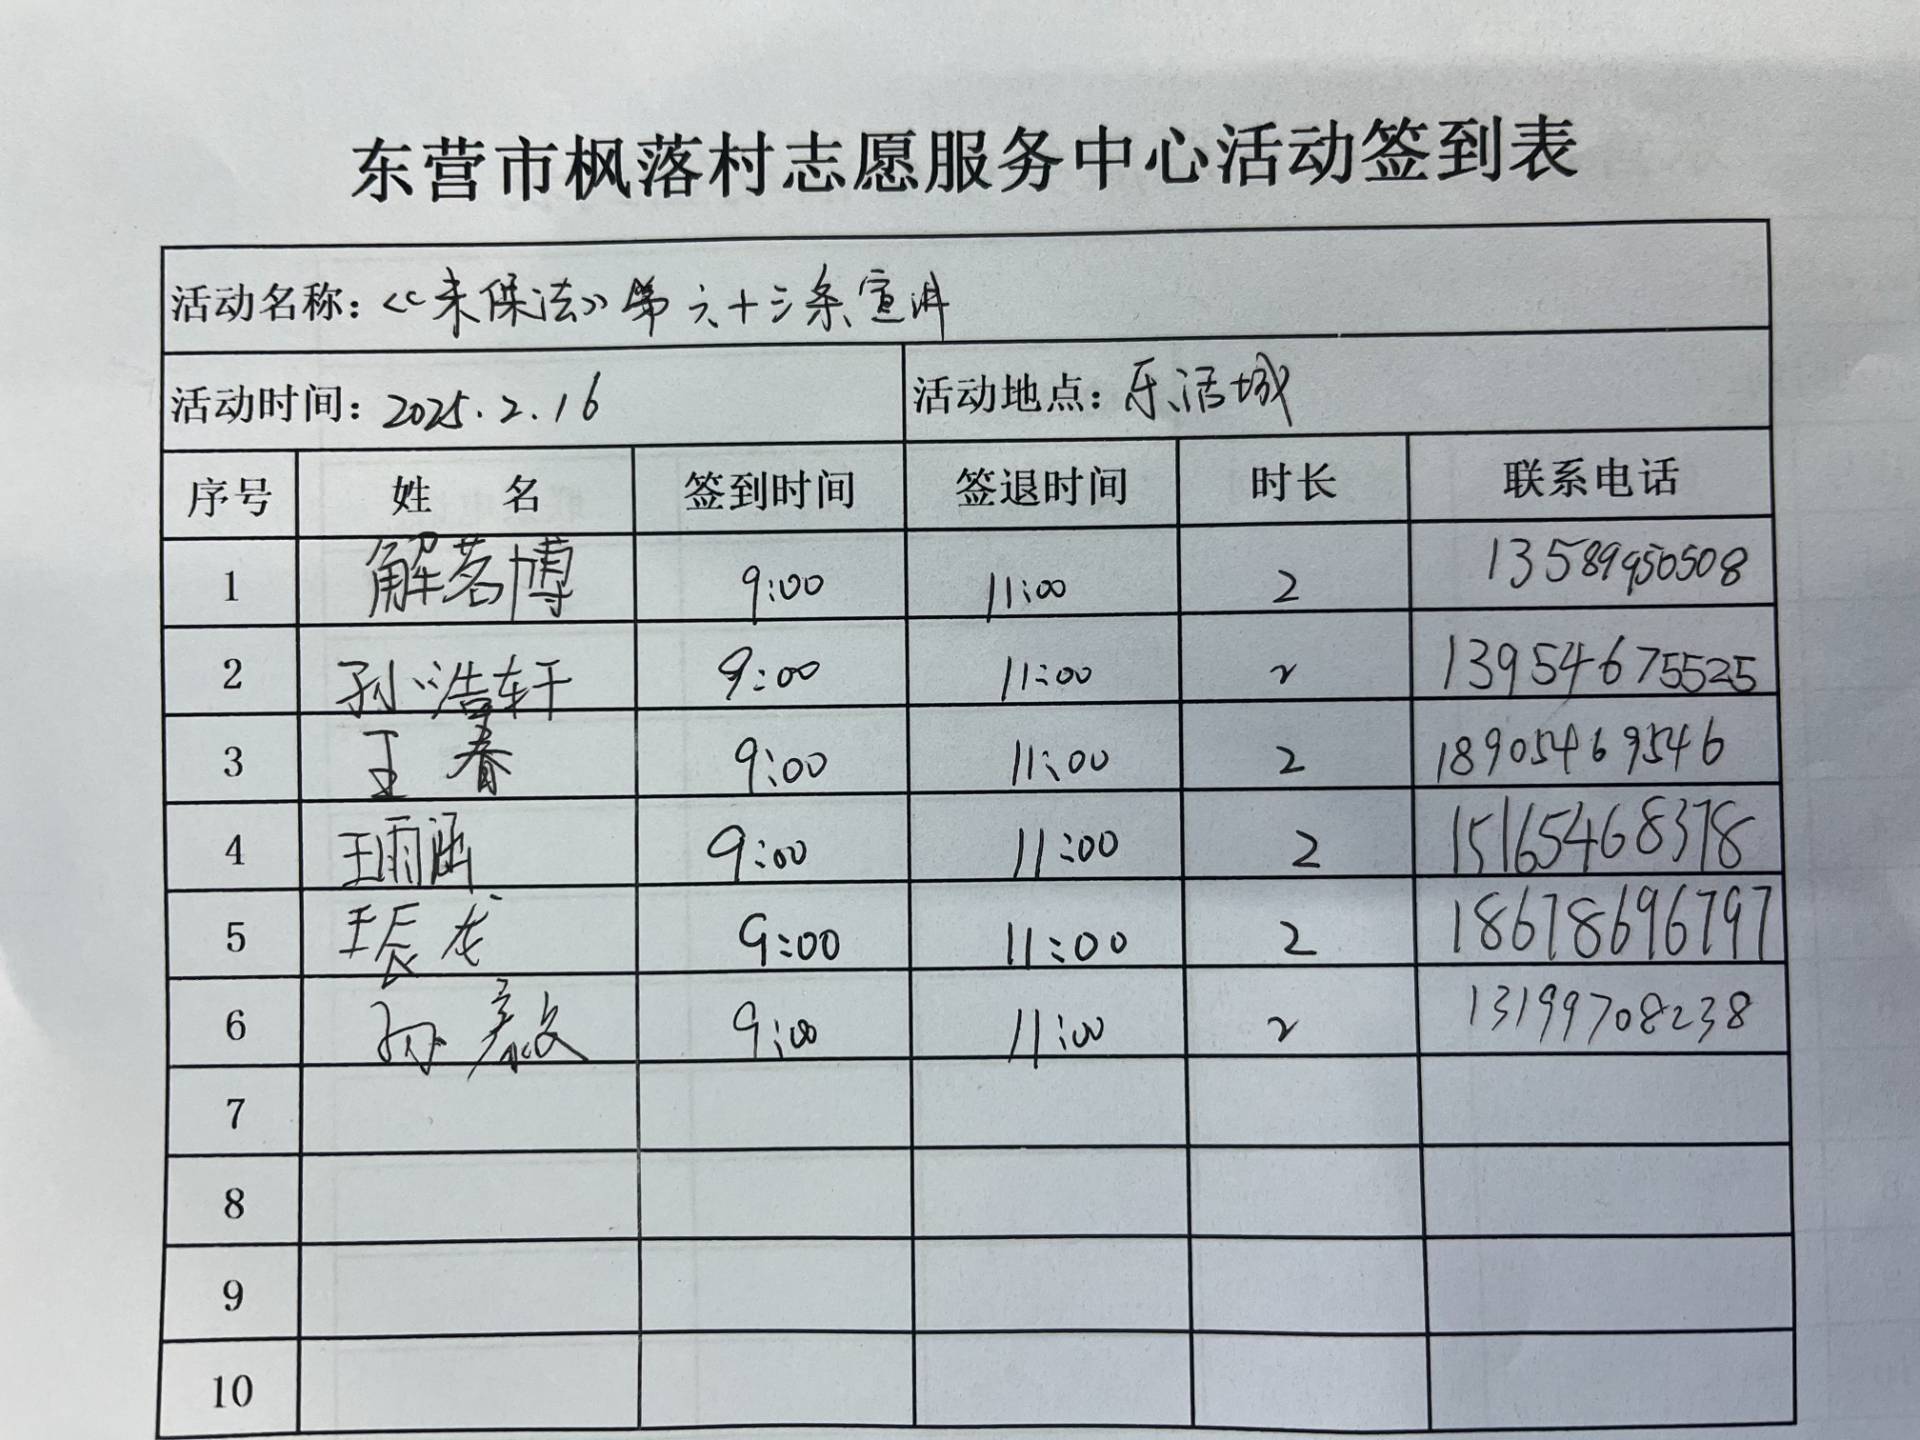 东营市枫落村志愿服务中心活动签到表
活动名称：《未保法》第六十三条宣讲
活动时间：2025.2.16 活动地点：乐活城
序号 姓 名 签到时间 签退时间 时长 联系电话
1 解茗博 9:00 11:00 2 13589950508
2 孙浩轩 9:00 11:00 2 13954675525
3 王春 9:00 11:00 2 18905469546
4 王雨涵 9:00 11:00 2 15165468378
5 王辰龙 9:00 11:00 2 18678696797
6 孙 9:00 11:00 2 13199708238
7
8
9
10